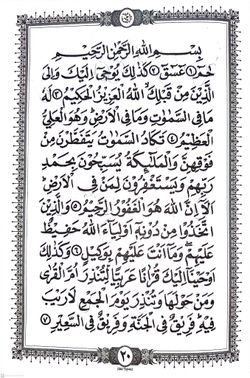 بِسْمِ اللهِ الرَّحْمٰنِ الرَّحِيْمِ
حٰمٓ ۝١ عٓسٓقٓ ۝٢ كَذٰلِكَ يُوْحِيْٓ اِلَيْكَ وَاِلَى
الَّذِيْنَ مِنْ قَبْلِكَ اللهُ الْعَزِيْزُ الْحَكِيْمُ ۝٣ لَهٗ
مَا فِي السَّمٰوٰتِ وَمَا فِي الْاَرْضِ وَهُوَ الْعَلِيُّ
الْعَظِيْمُ ۝٤ تَكَادُ السَّمٰوٰتُ يَتَفَطَّرْنَ مِنْ
فَوْقِهِنَّ وَالْمَلٰٓئِكَةُ يُسَبِّحُوْنَ بِحَمْدِ
رَبِّهِمْ وَيَسْتَغْفِرُوْنَ لِمَنْ فِي الْاَرْضِ
اَلَآ اِنَّ اللهَ هُوَ الْغَفُوْرُ الرَّحِيْمُ ۝٥ وَالَّذِيْنَ
اتَّخَذُوْا مِنْ دُوْنِهٖٓ اَوْلِيَآءَ اللهُ حَفِيْظٌ
عَلَيْهِمْ وَمَآ اَنْتَ عَلَيْهِمْ بِوَكِيْلٍ ۝٦ وَكَذٰلِكَ
اَوْحَيْنَآ اِلَيْكَ قُرْاٰنًا عَرَبِيًّا لِّتُنْذِرَ اُمَّ الْقُرٰى
وَمَنْ حَوْلَهَا وَتُنْذِرَ يَوْمَ الْجَمْعِ لَا رَيْبَ
فِيْهِ فَرِيْقٌ فِي الْجَنَّةِ وَفَرِيْقٌ فِي السَّعِيْرِ ۝٧
٢٠